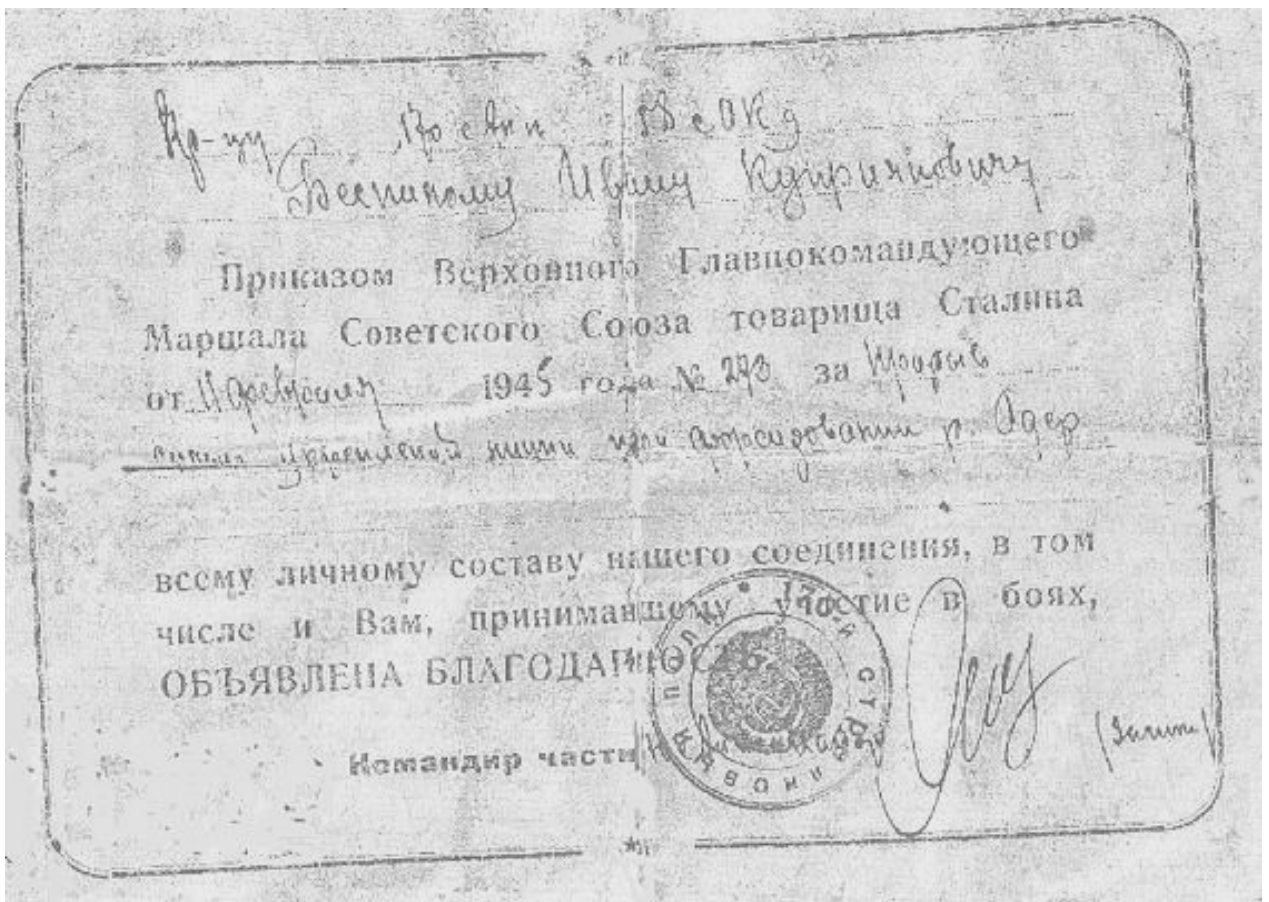 Кр-цу 170 с 58
Беспалому Ивану Куприяновичу
Приказом Верховного Главнокомандующего
Маршала Советского Союза товарища Сталина
от 11 февраля 1945 года № 273 за прорыв
линии при форсировании р. Одер
всему личному составу нашего соединения, в том
числе и Вам, принимавшему участие в боях,
ОБЪЯВЛЕНА БЛАГОДАРНОСТЬ
Командир части
170-й стрелковый полк